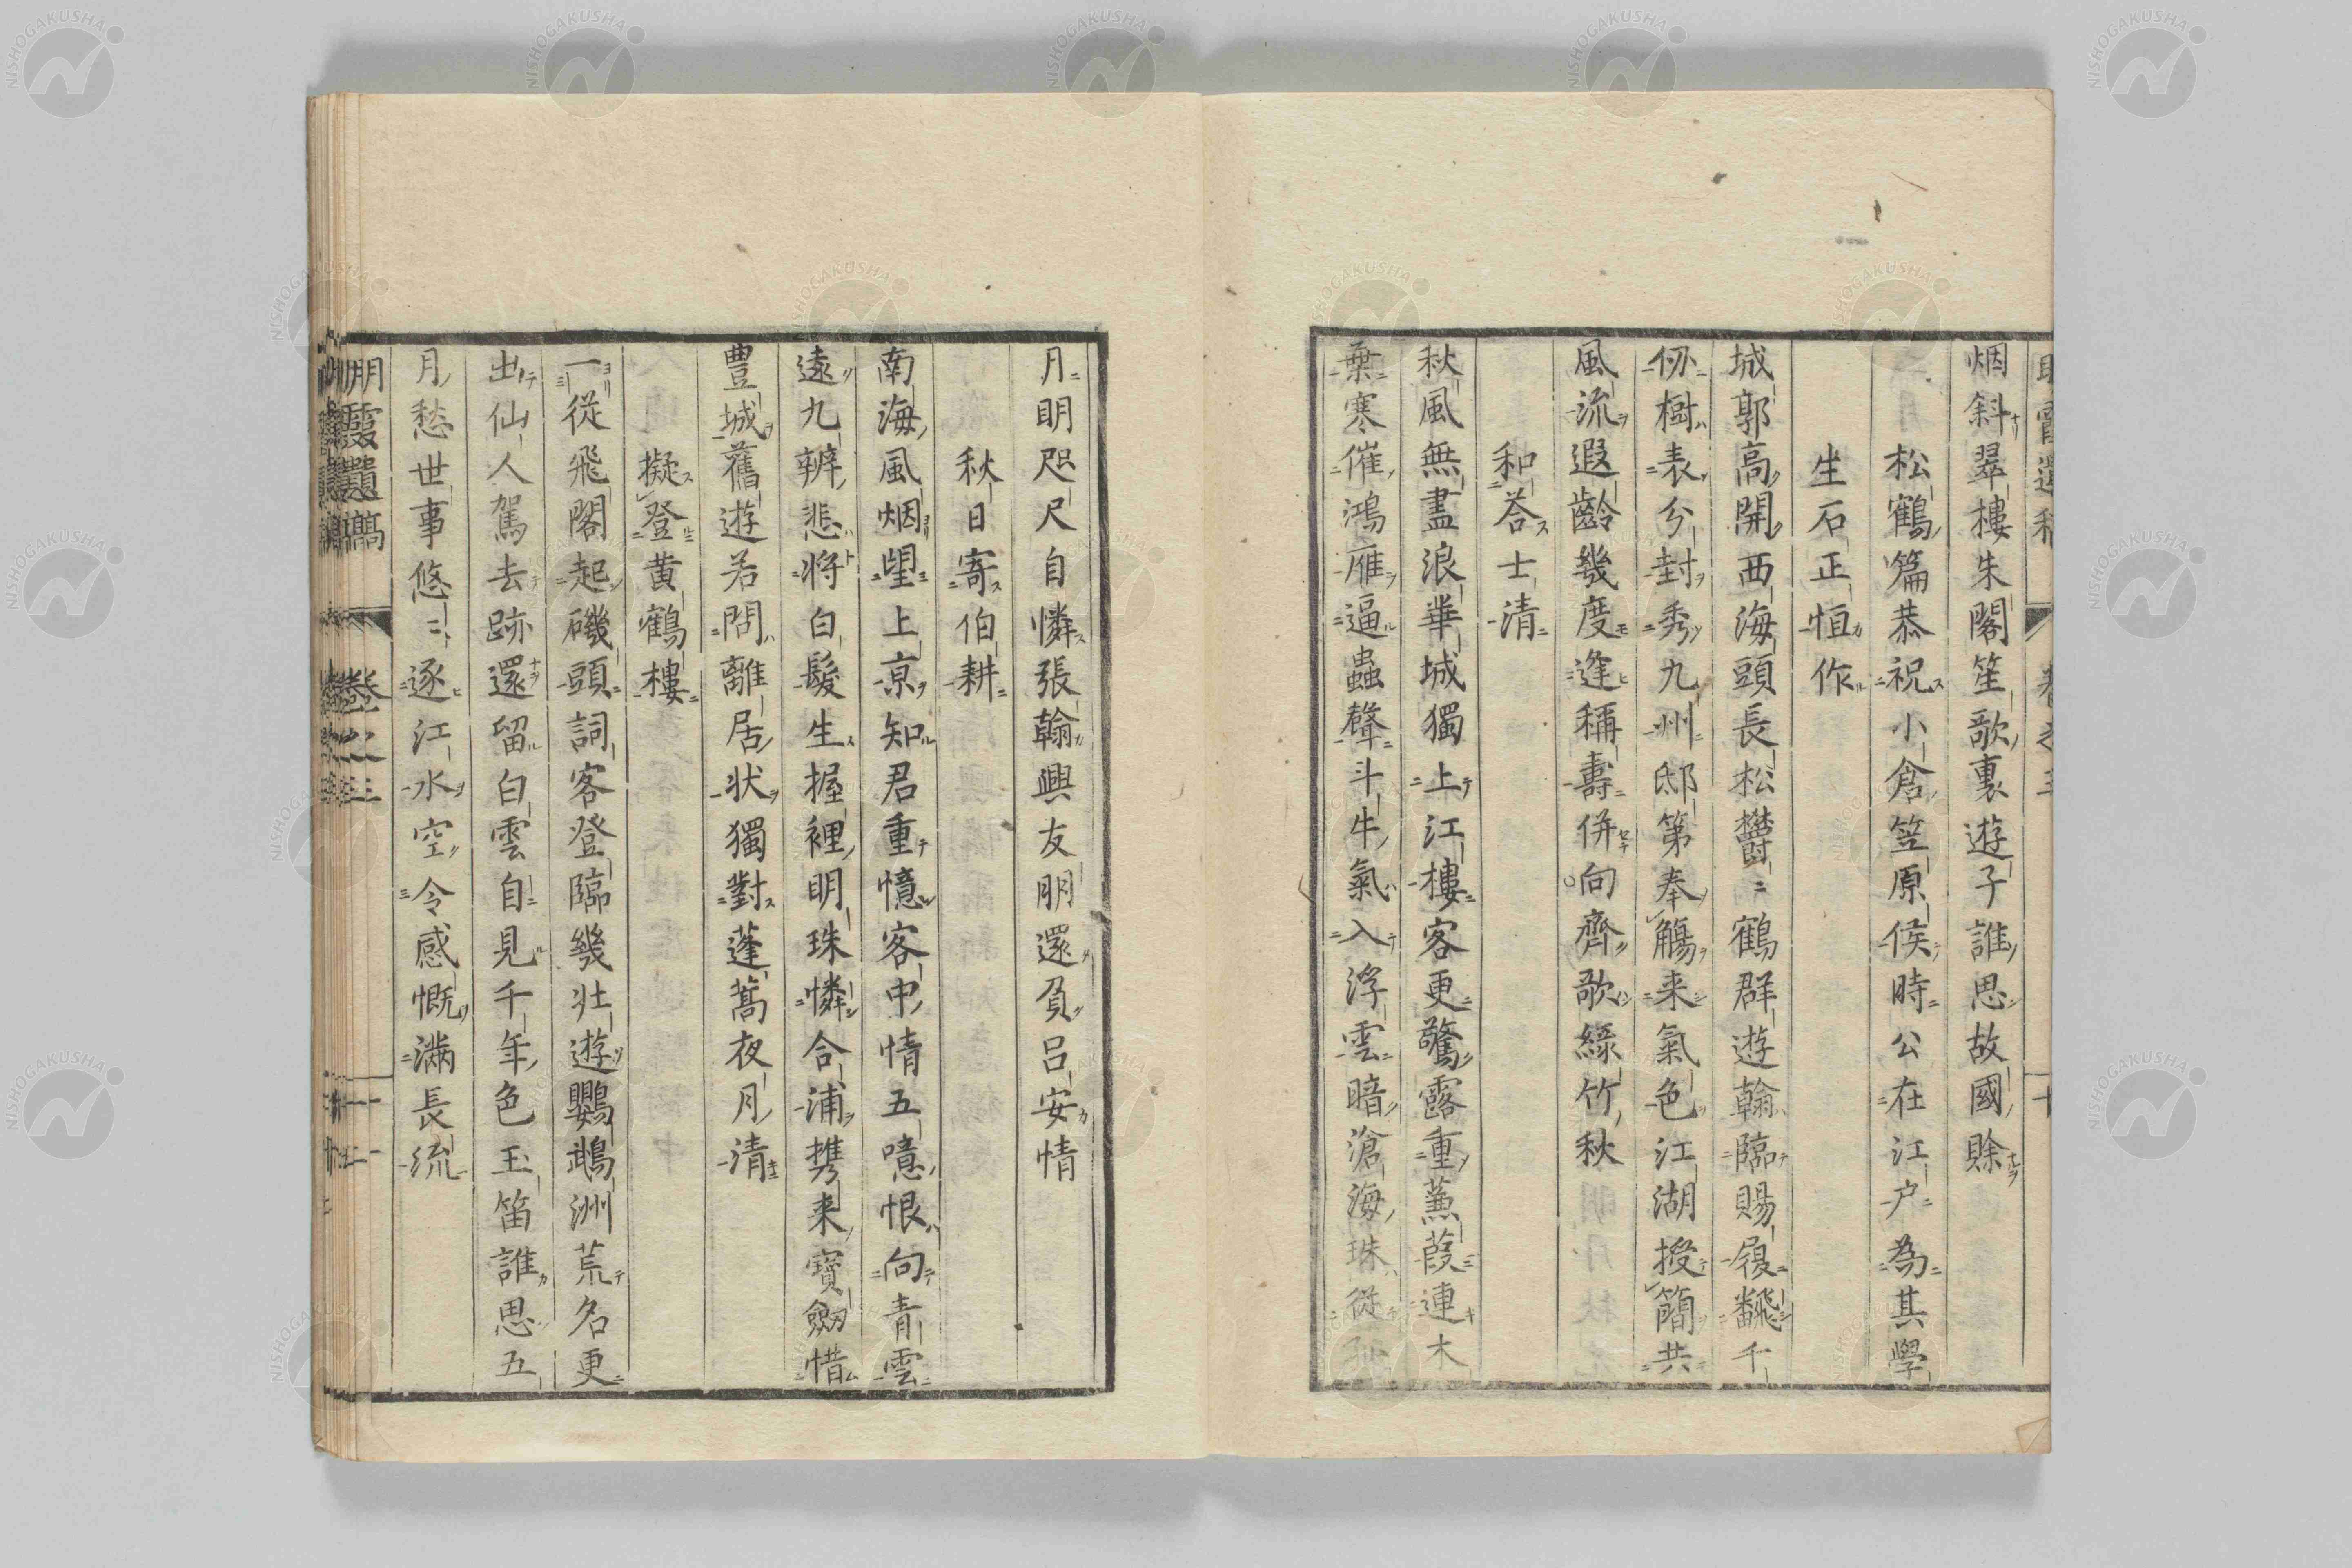 烟斜翠樓朱閣笙歌裏遊子誰思故國賖
松鶴篇恭祝小倉笠原侯時公在江户為其學
生石正恒作
城郭高開西海頭長松欝〻鶴群遊翰臨賜履飜千
仭樹表分封秀九州邸第奉觴来氣色江湖授簡共
風流遐齡幾度逢稱壽併向齊歌綠竹秋
和荅士清
秋風無盡浪華城獨上江樓客更驚露重蒹葭連木
葉寒催鴻雁逼蟲聲斗牛氣入浮雲暗滄海珠從
月明咫尺自憐張翰興友朋還負呂安情
秋日寄伯耕
南海風烟望上京知君重憶客中情五噫恨向青雲
遠九辨悲將白髮生握裡明珠憐合浦携来寶劔惜
豊城舊遊若問離居状獨對蓬蒿夜月清
擬登黄鶴樓
一從飛閣起磯頭詞客登臨幾壮遊鸚鵡洲荒名更
出仙人駕去跡還留白雲自見千年色玉笛誰思五
月愁世事悠〻逐江水空令感慨滿長流
明霞遺稿 卷之三 十一
NISHOGAKUSHA